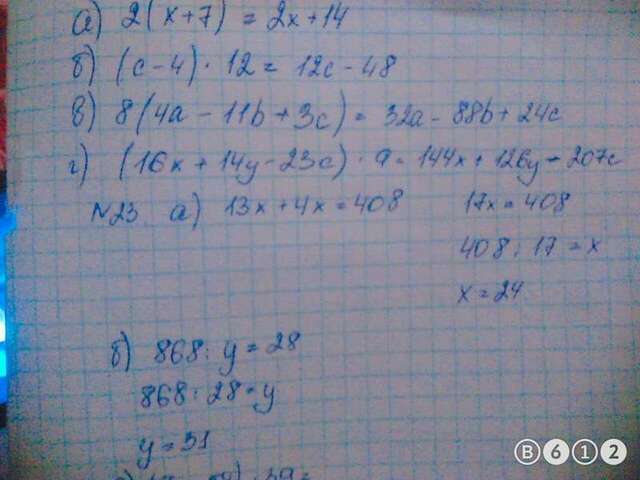 а) 2(x+7) = 2x+14
б) (c-4)·12 = 12c-48
в) 8(4a - 11b + 3c) = 32a - 88b + 24c
г) (16x + 14y - 23c)·9 = 144x + 126y - 207c
N23 а) 13x + 4x = 408
17x = 408
408 : 17 = x
x = 24
б) 868 : y = 28
868 : 28 = y
y = 31
B612